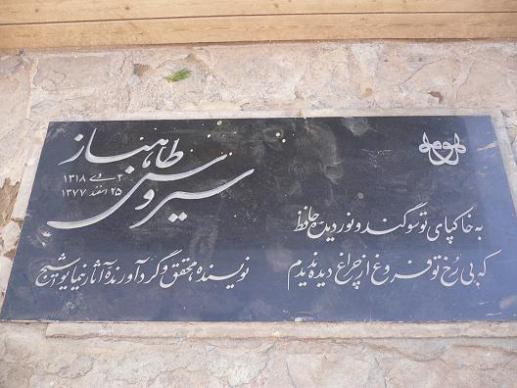 سیروس طاهباز
۲ دی ۱۳۱۸
۲۵ اسفند ۱۳۷۷
به خاکپای تو سوگند و نور دیدهٔ حافظ
که بی رُخ تو فروغ از چراغ دیده ندیدم
نویسنده، محقق و گردآورندهٔ آثار نیما یوشیج